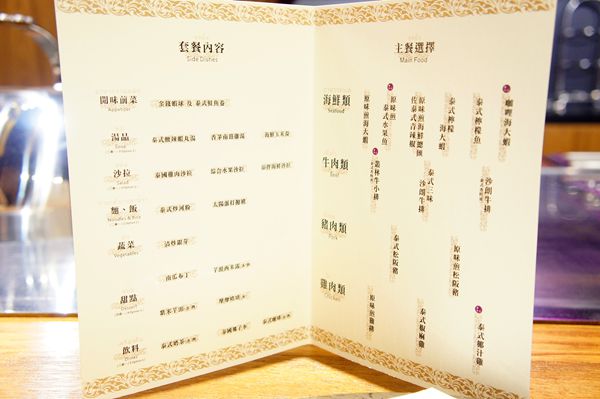 套餐內容
Side Dishes
開味前菜
Appetizer
金錢蝦球 及 泰式鮮魚卷
湯品
Soup
泰式酸辣蝦丸湯
香茅雞蓉雞湯
海鮮玉米卷
沙拉
Salad
泰國雞肉沙拉
綜合水果沙拉
綜合海鮮沙拉
麵、飯
Noodles & Rice
泰式炒河粉
太陽蛋打拋豬
蔬菜
Vegetables
清炒銀芽
甜點
Dessert
南瓜布丁
芋頭西米露
紫米芋頭
摩摩喳喳
飲料
Drinks
泰式奶茶
泰國椰子水
泰式咖啡
主餐選擇
Main Food
海鮮類
Seafood
原味煎海大蝦
原味煎
泰式水果魚
原味煎海鮮總匯
佐泰式青辣椒
泰式檸檬
海大蝦
泰式檸檬魚
咖哩海大蝦
牛肉類
Beef
叢林牛小排
泰式三味
沙朗牛排
沙朗牛排
豬肉類
Pork
泰式松阪豬
原味煎松阪豬
雞肉類
Chicken
原味煎雞排
泰式椒麻雞
泰式椰汁雞